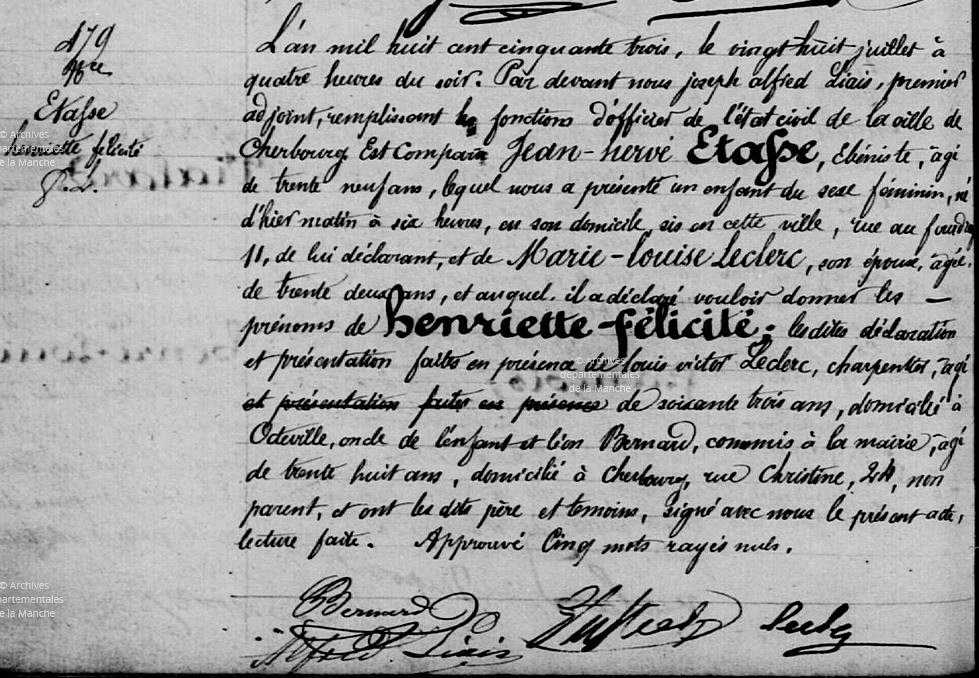 479
Nce
Etasse
félicité
© Archives
départementales
de la Manche
L'an mil huit cent cinquante trois, le vingt huit juillet à
quatre heures du soir. Par devant nous joseph alfred Liais, premier
adjoint, remplissant les fonctions d'officier de l'état civil de la ville de
Cherbourg, Est Comparu Jean-hervé Etasse, Ebéniste, âgé
de trente neuf ans, lequel nous a présenté un enfant du sexe féminin, né
d'hier matin à six heures, en son domicile, sis en cette ville, rue au
11, de lui déclarant, et de Marie-louise Leclerc, son épouse, âgée
de trente deux ans, et auquel il a déclaré vouloir donner les —
prénoms de henriette-félicité; lesdites déclaration
et présentation faites en présence de louis victor Leclerc, charpentier, âgé
© Archives
départementales
de la Manche
et présentation faites en présence de soixante trois ans, domicilié à
Octeville, oncle de l'enfant et léon Bernard, commis à la mairie, âgé
de trente huit ans, domicilié à Cherbourg, rue Christine, 24, non
parent, et ont les dits père et temoins, signé avec nous le présent acte,
lecture faite. Approuvé Cinq mots rayés nuls.
© Archives
départementales
de la Manche
Bernard
Alfred Liais